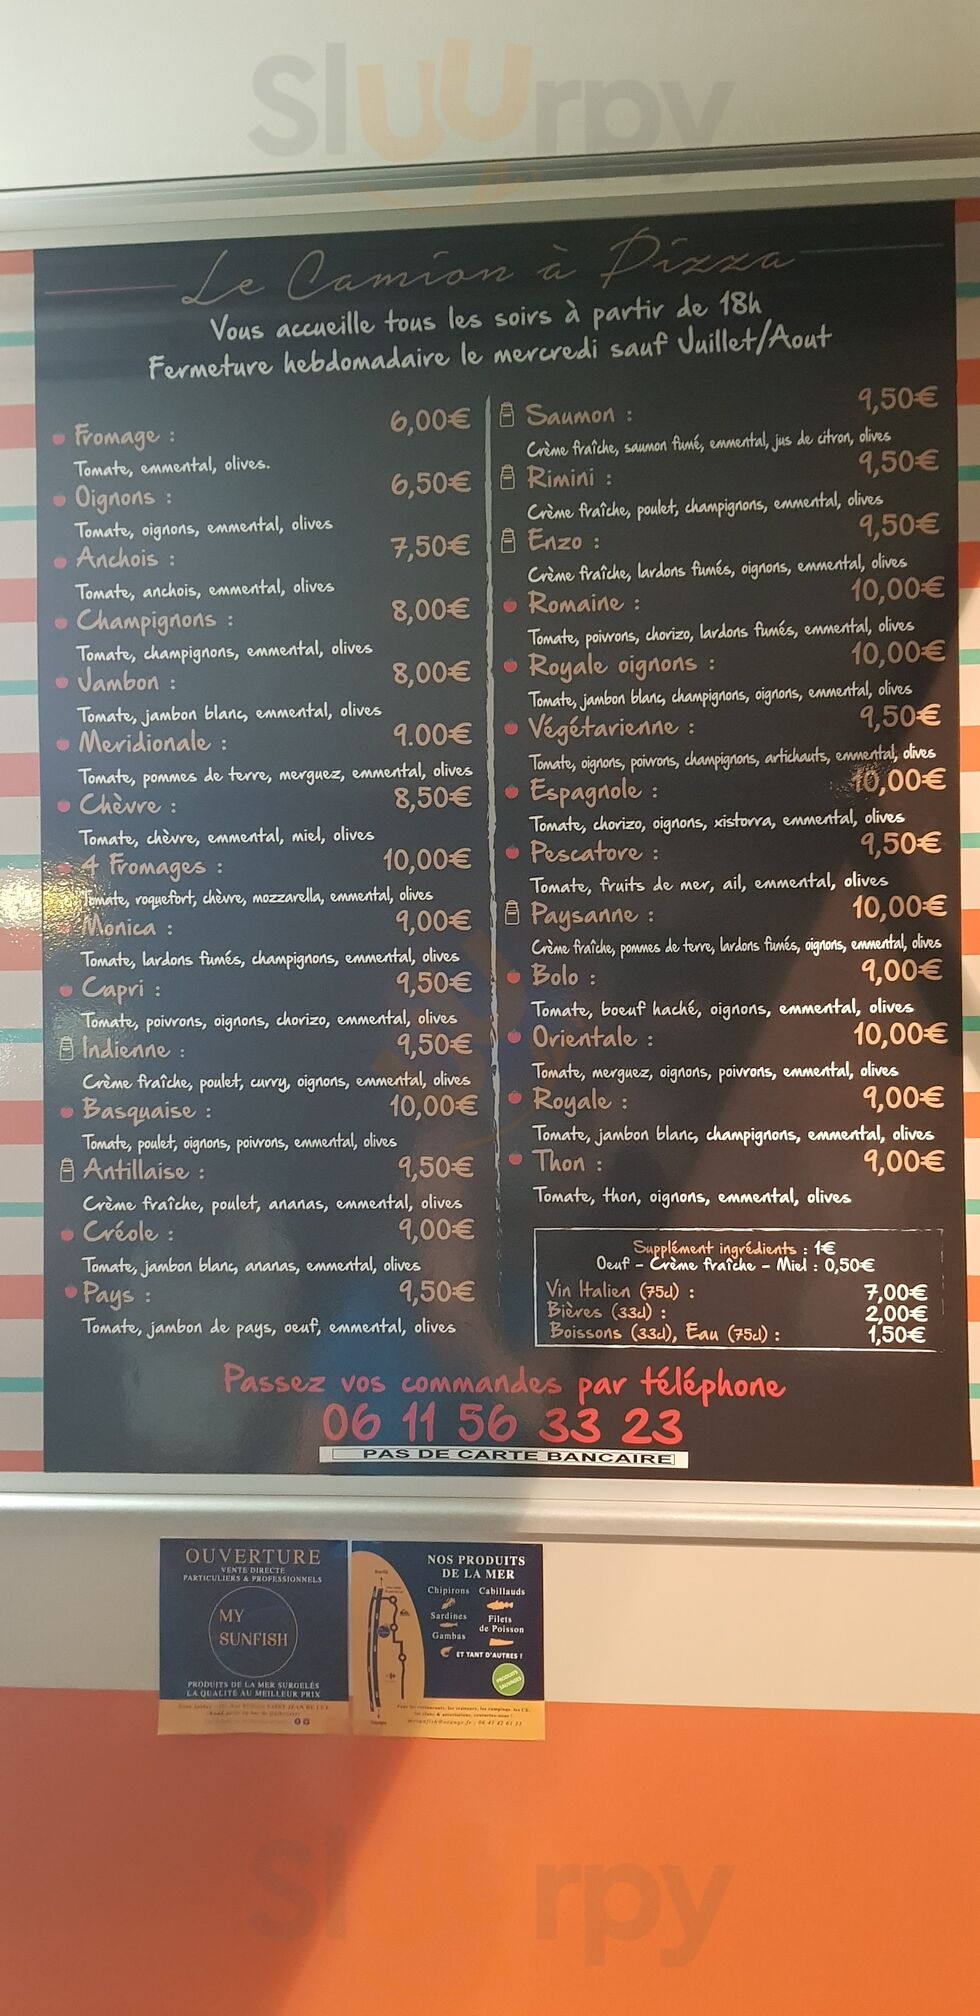 Sluurpy
Le Camion à Pizza
Vous accueille tous les soirs à partir de 18h
Fermeture hebdomadaire le mercredi sauf Juillet/Aout
Fromage : 6,00€
Tomate, emmental, olives.
Oignons : 6,50€
Tomate, oignons, emmental, olives
Anchois : 7,50€
Tomate, anchois, emmental, olives
Champignons : 8,00€
Tomate, champignons, emmental, olives
Jambon : 8,00€
Tomate, jambon blanc, emmental, olives
Meridionale : 9.00€
Tomate, pommes de terre, merguez, emmental, olives
Chèvre : 8,50€
Tomate, chèvre, emmental, miel, olives
4 Fromages : 10,00€
Tomate, roquefort, chèvre, mozzarella, emmental, olives
Monica : 9,00€
Tomate, lardons fumés, champignons, emmental, olives
Capri : 9,50€
Tomate, poivrons, oignons, chorizo, emmental, olives
Indienne : 9,50€
Crème fraîche, poulet, curry, oignons, emmental, olives
Basquaise : 10,00€
Tomate, poulet, oignons, poivrons, emmental, olives
Antillaise : 9,50€
Crème fraîche, poulet, ananas, emmental, olives
Créole : 9,00€
Tomate, jambon blanc, ananas, emmental, olives
Pays : 9,50€
Tomate, jambon de pays, oeuf, emmental, olives
Saumon : 9,50€
Crème fraîche, saumon fumé, emmental, jus de citron, olives
Rimini : 9,50€
Crème fraîche, poulet, champignons, emmental, olives
Enzo : 9,50€
Crème fraîche, lardons fumés, oignons, emmental, olives
Romaine : 10,00€
Tomate, poivrons, chorizo, lardons fumés, emmental, olives
Royale oignons : 10,00€
Tomate, jambon blanc, champignons, oignons, emmental, olives
Végétarienne : 9,50€
Tomate, oignons, poivrons, champignons, artichauts, emmental, olives
Espagnole : 10,00€
Tomate, chorizo, oignons, xistorra, emmental, olives
Pescatore : 9,50€
Tomate, fruits de mer, ail, emmental, olives
Paysanne : 10,00€
Crème fraîche, pommes de terre, lardons fumés, oignons, emmental, olives
Bolo : 9,00€
Tomate, boeuf haché, oignons, emmental, olives
Orientale : 10,00€
Tomate, merguez, oignons, poivrons, emmental, olives
Royale : 9,00€
Tomate, jambon blanc, champignons, emmental, olives
Thon : 9,00€
Tomate, thon, oignons, emmental, olives
Supplément ingrédients : 1€
Oeuf - Crème fraîche - Miel : 0,50€
Vin Italien (75cl) : 7,00€
Bières (33cl) : 2,00€
Boissons (33cl), Eau (75cl) : 1,50€
Passez vos commandes par téléphone
06 11 56 33 23
PAS DE CARTE BANCAIRE
OUVERTURE
VENTE DIRECTE
PARTICULIERS & PROFESSIONNELS
MY
SUNFISH
PRODUITS DE LA MER SURGELÉS
LA QUALITÉ AU MEILLEUR PRIX
NOS PRODUITS
DE LA MER
Chipirons Cabillauds
Sardines Filets
de Poisson
Gambas
ET TANT D'AUTRES !
PRODUITS
SAUVAGES
Sluurpy